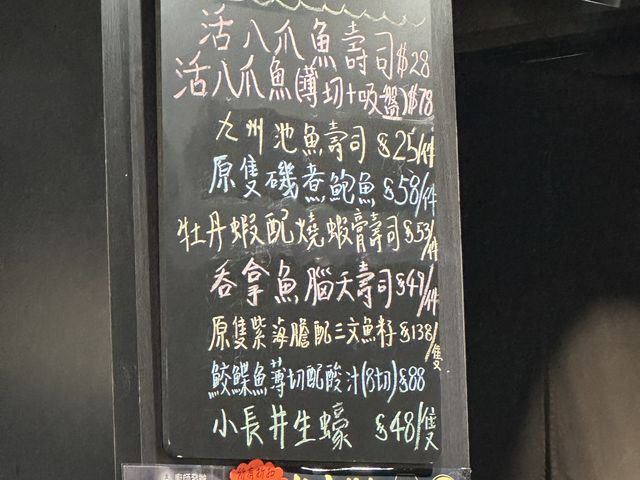 活八爪魚壽司$28
活八爪魚(薄切+吸盤)$78
九州池魚壽司 $25/件
原隻磯煮鮑魚 $58/件
牡丹蝦配燒蝦膏壽司$53/件
吞拿魚腦天壽司$47/件
原隻紫海膽配三文魚籽$138/隻
鮫鰈魚薄切配酸汁(8切)$88
小長井生蠔 $48/隻